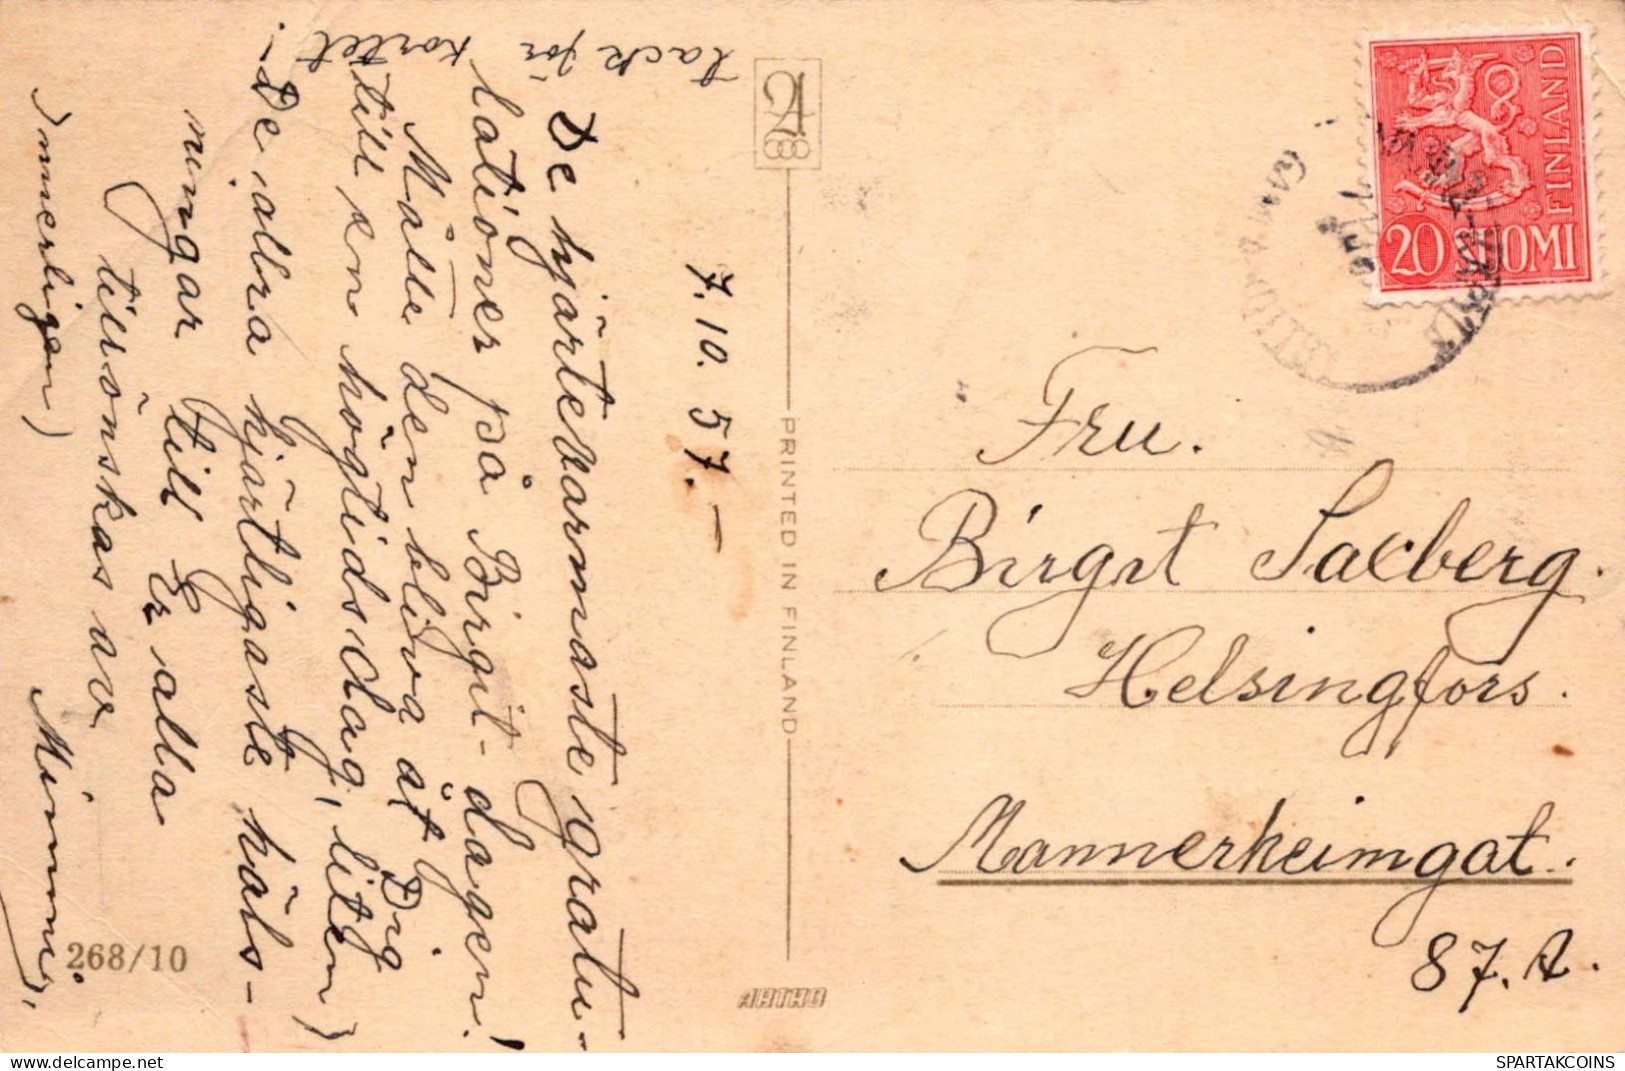 7.10.57.-
De hjärtevarmaste gratu-
lationer på Birgit-dagen!
Måtte den bliva åt Dig
till en högtidsdag, liten)
De allra hjärtligaste häls-
ningar till Er alla
tillönskas av
Mimmi,
(innerligen)
tack för
kortet
PRINTED IN FINLAND
ARTKO
268/10
20 SUOMI
FINLAND
Fru.
Birgit Saxberg.
Helsingfors.
Mannerheimgat.
87. A.
SPARTAKCOINS